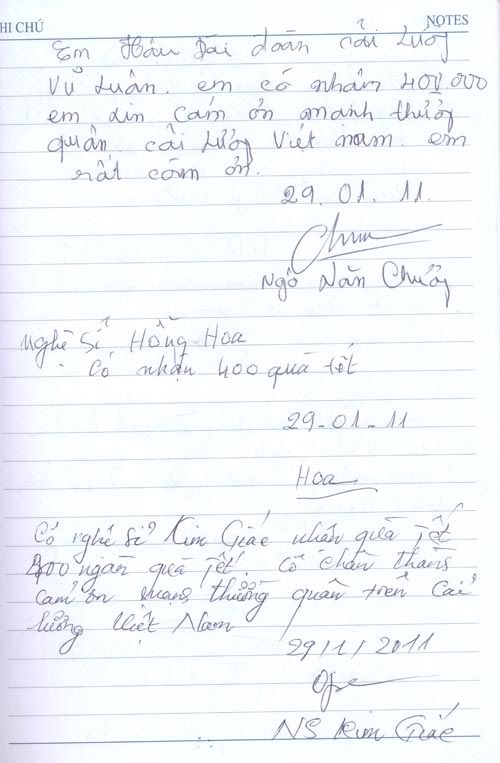 HI CHÚ NOTES
Em Hậu Đài đoàn cải Lương
Vũ Luân. em có nhậm 400.000
em din cám ơn mạnh thường
quân. cãi Lương Việt nam. em
rất cãm ơn.
29.01.11.
Ngô Văn Chưởng
Nghệ Sĩ Hồng Hoa
Có nhận 400 quà tết
29-01-11
Hoa
Cô nghệ sĩ Kim Giác nhận quà Tết
400 ngàn quà Tết. Cô chân thành
cảm ơn mạng thường quân trên Cải
lương Việt Nam
29/1/2011
NS Kim Giác